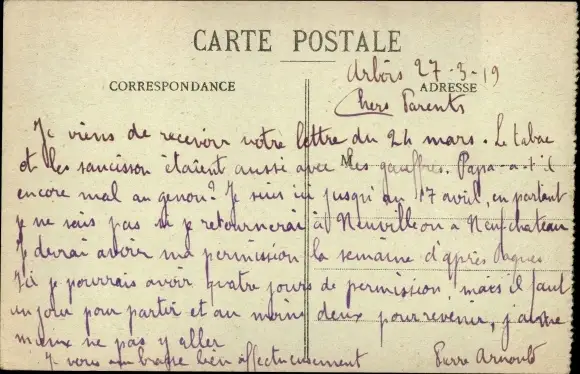 CARTE POSTALE
CORRESPONDANCE
ADRESSE
Arbois 27-3-19
Chers Parents
Je viens de recevoir votre lettre du 24 mars. Le tabac
et les saucisson étaient aussi avec les gauffres. Papa a-t-il
encore mal au genou? Je suis ici jusqu'au 17 avril, en partant
je ne sais pas si je retournerai à Neuville ou a Neufchateau
Je devrai avoir ma permission la semaine d'après Paques
Ici je pourrais avoir quatre jours de permission, mais il faut
un jour pour partir et au moins deux pour revenir, j'aime
mieux ne pas y aller
Je vous embrasse bien affectueusement
Pierre Arnould